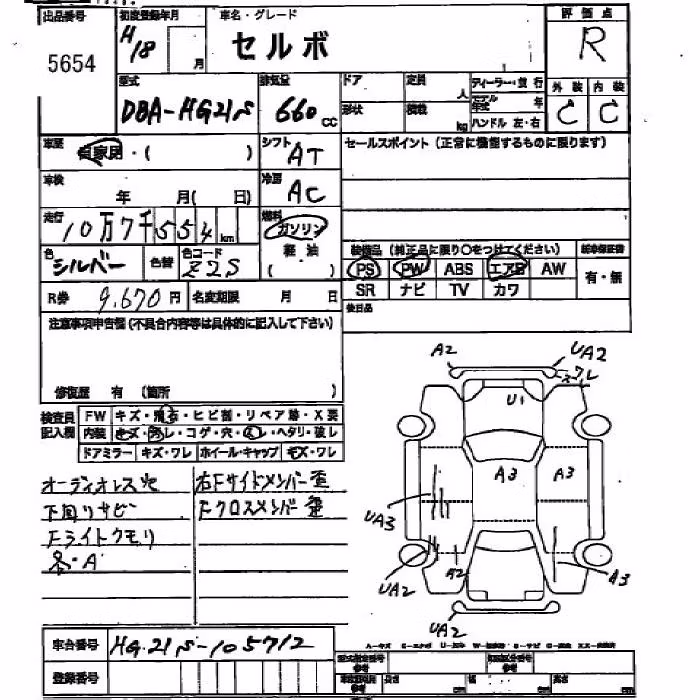 出品番号 初度登録年月 車名・グレード 評価点
5654 H18 月 セルボ R
型式 排気量 ドア 定員 人 ディーラー・並行 外装 内装
DBA-HG21S 660 cc 形状 積載 kg モデル年式 年 C C
ハンドル 左・右
車歴 自家用・( ) シフト AT セールスポイント(正常に機能するものに限ります)
車検 年 月( 日) 冷房 AC
走行 10万7千554km 燃料 ガソリン 軽油 ( )
色 シルバー 色替 色コード Z2S
装備品(純正品に限り○をつけてください) 新車保証書
PS PW ABS エアB AW 有・無
SR ナビ TV カワ
R券 9,670円 名変期限 月 日 後日品
注意事項申告欄(不具合内容等は具体的に記入して下さい)
修復歴 有 (箇所 )
検査員記入欄 FW キズ・飛石・ヒビ割・リペア跡・X要
内装 キズ・汚レ・コゲ・穴・スレ・ヘタリ・破レ
ドアミラー キズ・ワレ ホイール・キャップ キズ・ワレ
オーディオレス穴 右Fサイドメンバー歪
下回りサビ Fクロスメンバー歪
Fライトクモリ
各・A
A2 UA2
ワレ
U1
A3 A3
UA3
UA2 A2 A3
UA2
車台番号 HG21S-105712
登録番号
型式指定番号 参考 類別区分番号 参考
参考 長さ cm 幅 cm 高さ cm